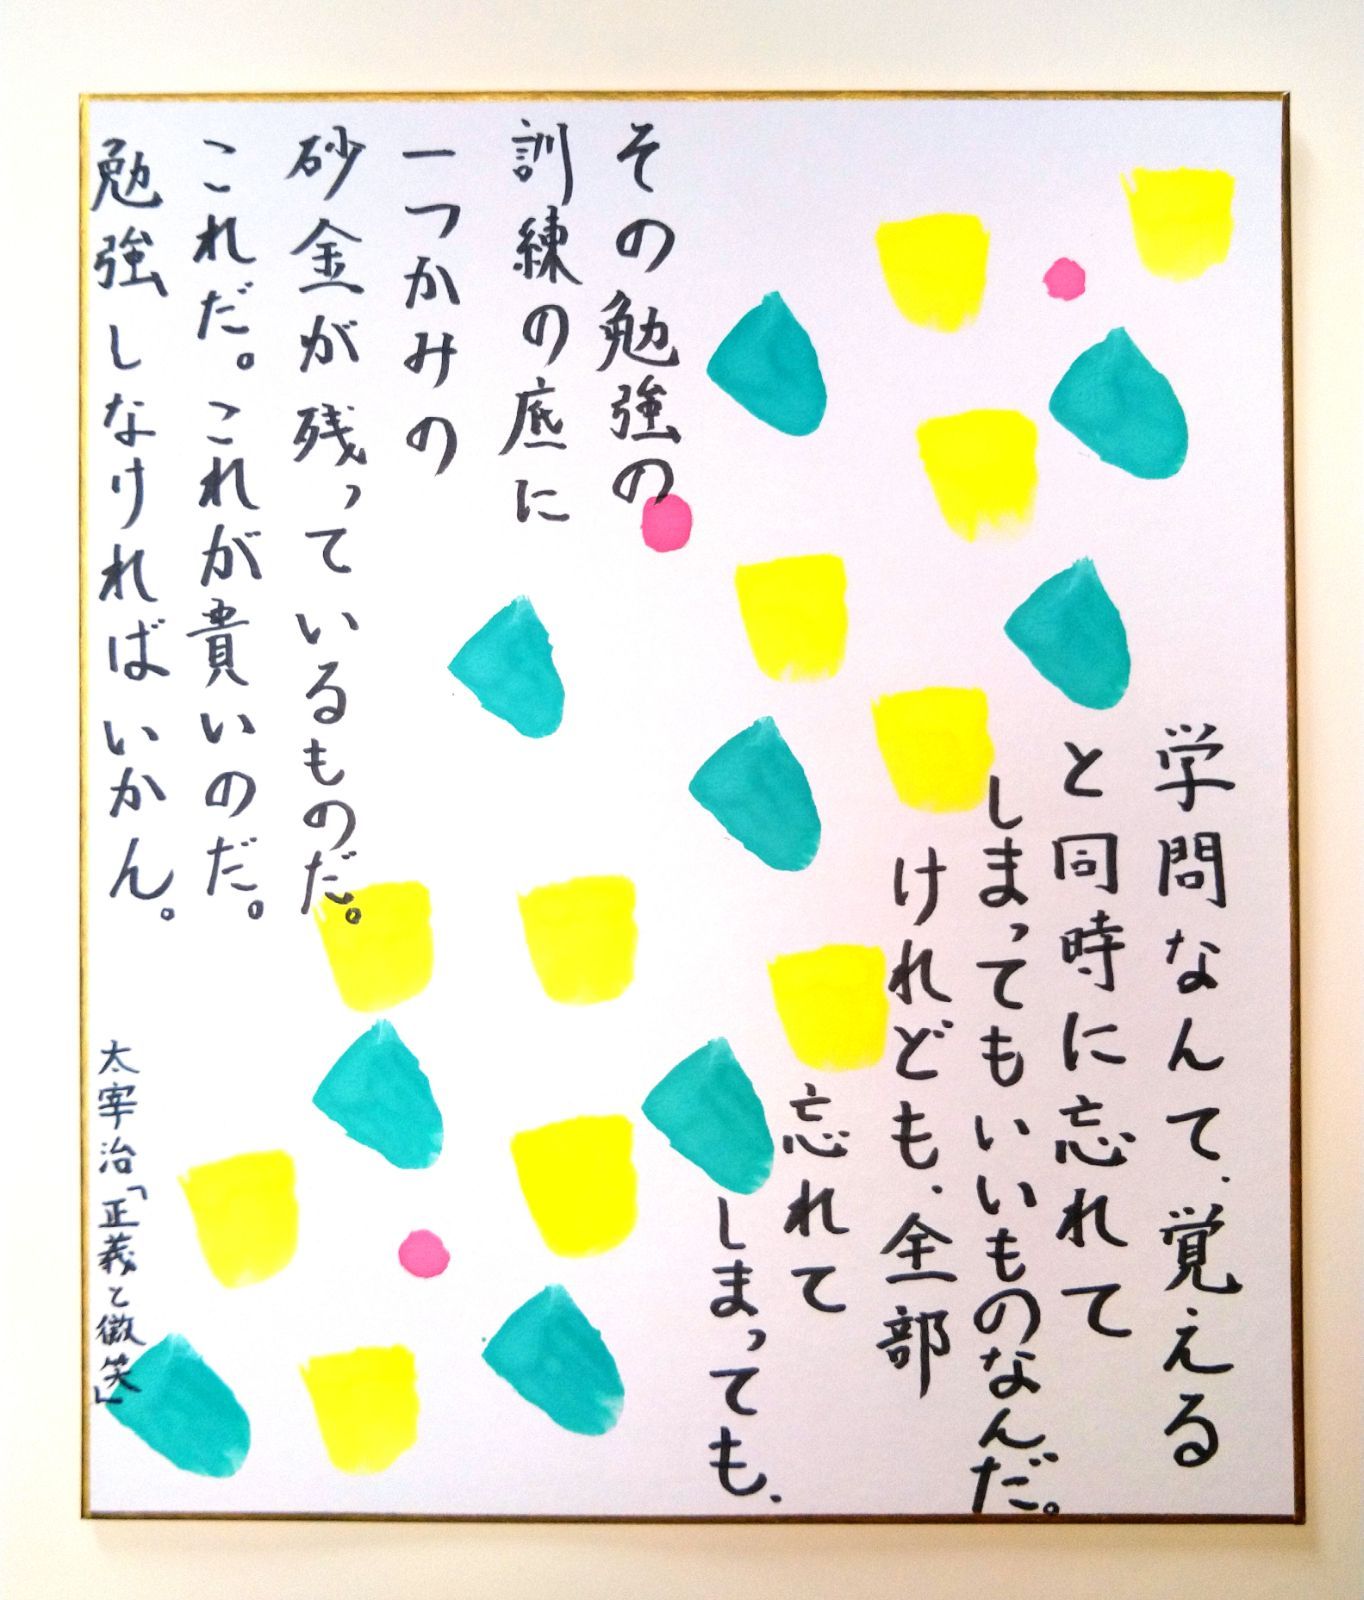 学問なんて、覚える
と同時に忘れて
しまってもいいものなんだ。
けれども、全部
忘れて
しまっても、
その勉強の
訓練の底に
一つかみの
砂金が残っているものだ。
これだ。これが貴いのだ。
勉強しなければいかん。
太宰治「正義と微笑」